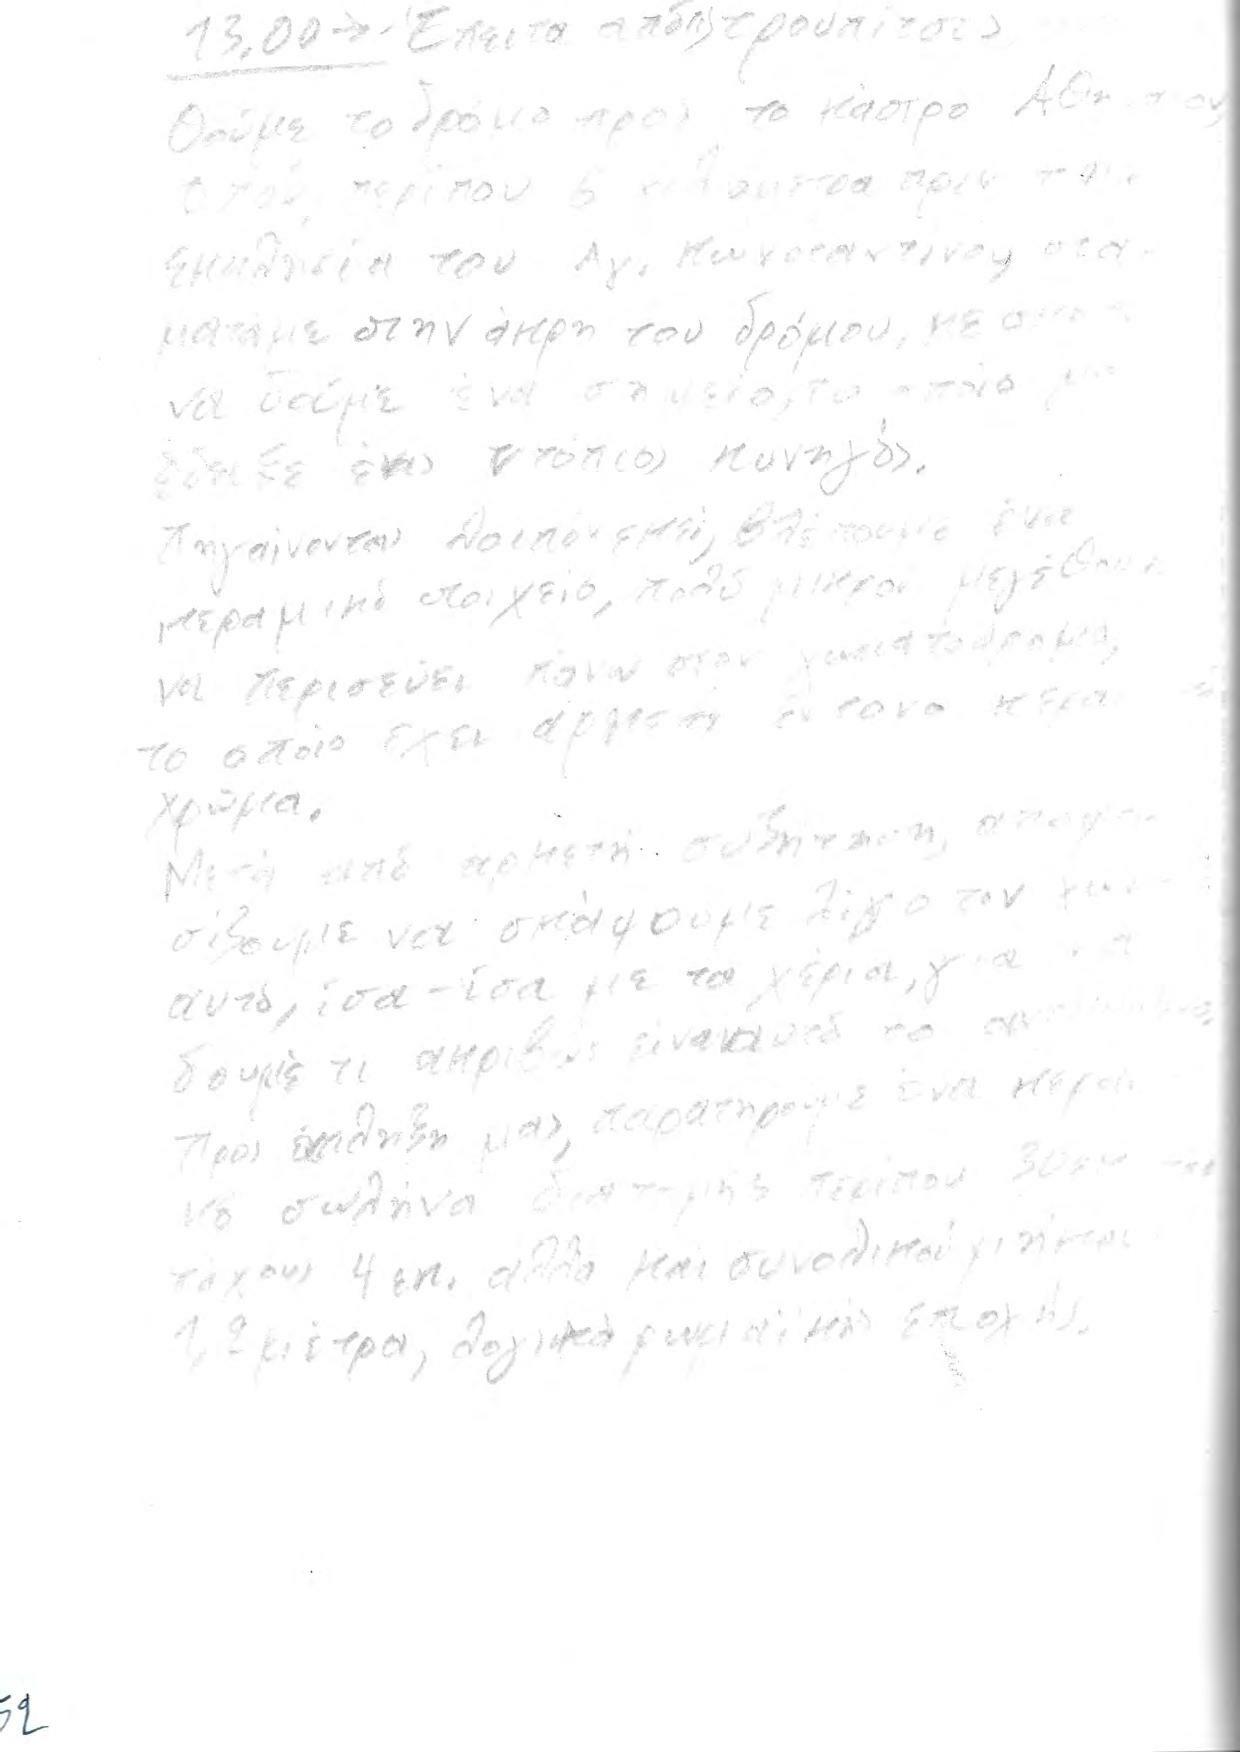 13.00 → Έπειτα από τρουπίτσες
Θούμε το δρόμο προς το Κάστρο
όπου, περίπου 6 χιλιόμετρα πριν την
εκκλησία του Αγ. Κωνσταντίνου, στα-
ματάμε στην άκρη του δρόμου, με σκοπό
να δούμε ένα σημείο, το οποίο μας
έδειξε ένας ντόπιος κυνηγός.
Πηγαίνοντας λοιπόν εκεί, βλέπουμε ένα
κεραμικό στοιχείο, πολύ μικρού μεγέθους
να περισεύει πάνω στον χωματόδρομο,
το οποίο έχει αρκετά έντονο
χρώμα.
Μετά από αρκετή συζήτηση, αποφα-
σίζουμε να σκάψουμε λίγο τον
αυτό, ίσα-ίσα με τα χέρια, για να
δούμε τι ακριβώς είναι αυτό το
Προς έκπληξη μας, παρατηρούμε ένα κεραμι-
κό σωλήνα διατομής περίπου 30εκ
πάχους 4 εκ. αλλά και συνολικού μήκους
1,2 μέτρα, λογικά ρωμαϊκής εποχής.
52